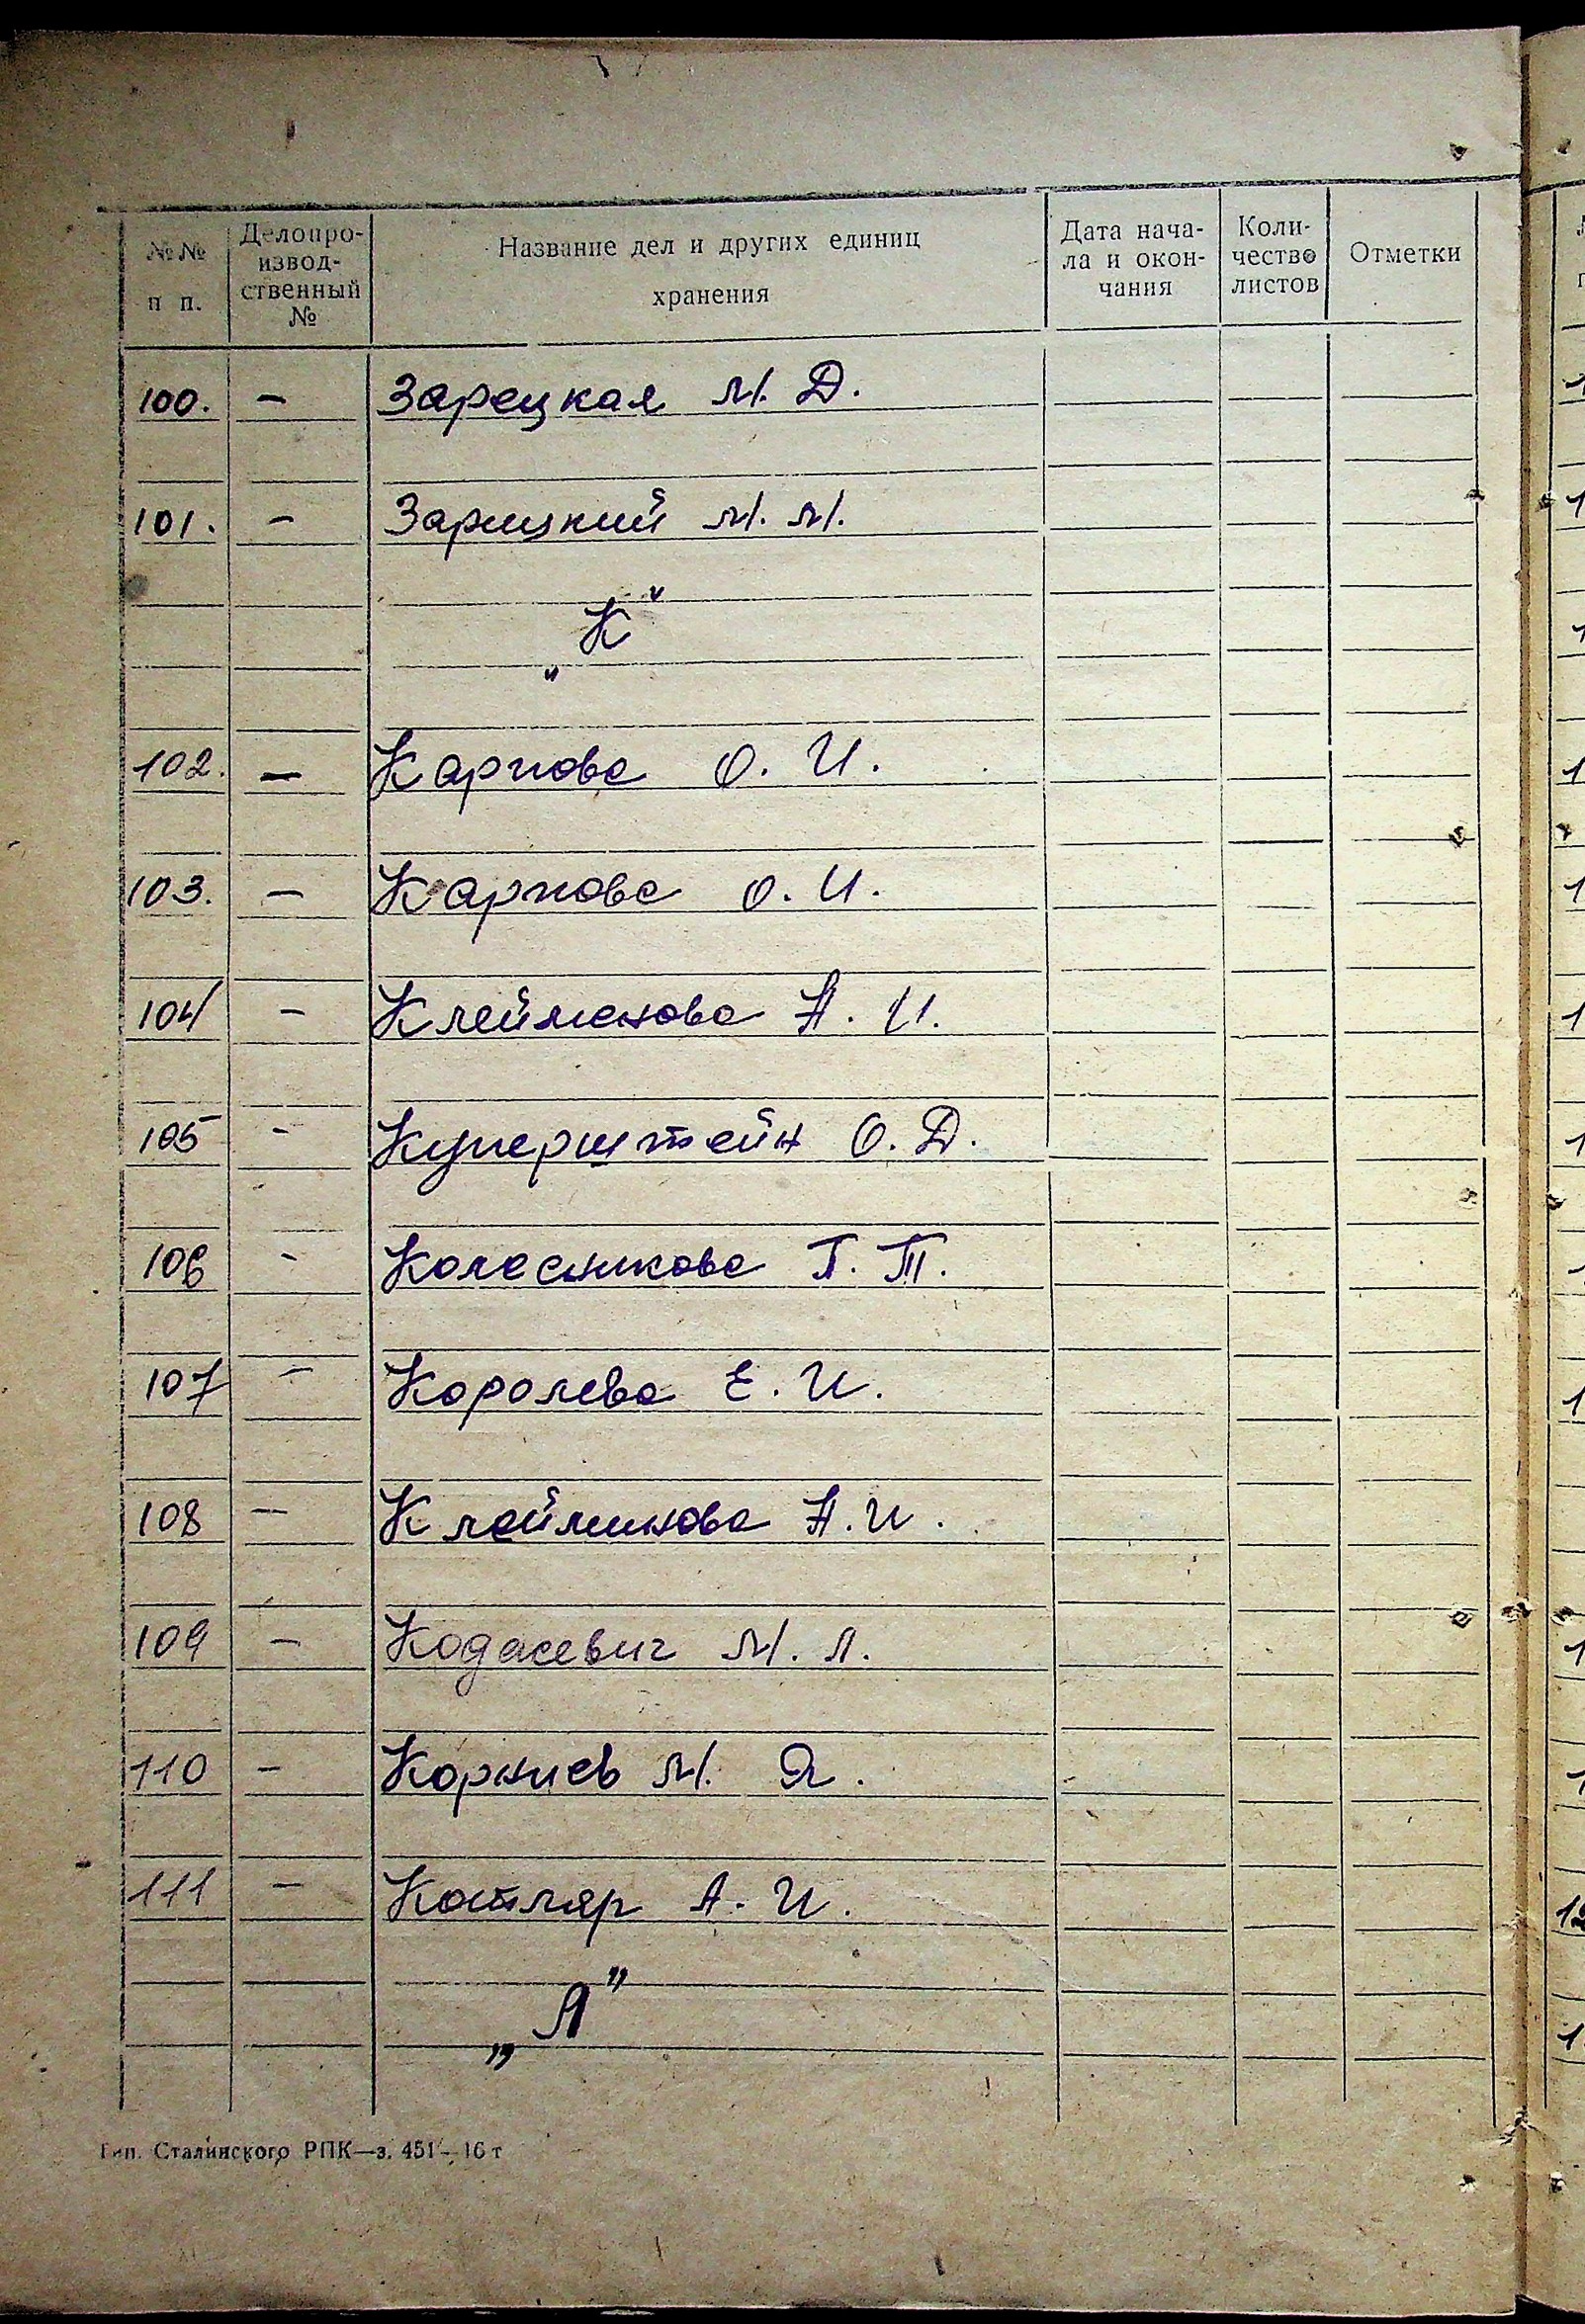 №№ п п. Делопро-извод-ственный № Название дел и других единиц хранения Дата нача-ла и окон-чания Коли-чество листов Отметки
100. – Зарецкая М. Д.
101. – Зарицкий М. М.
„К“
102. – Карпова О. И.
103. – Карпова О. И.
104 – Клейменова А. И.
105 – Куперштейн О. Д.
106 – Колесникова Г. Т.
107 – Королева Е. И.
108 – Клейминова А. И.
109 – Кодасевич М. Л.
110 – Корниев М. Я.
111 – Котляр А. И.
„Л“
Тип. Сталинского РПК—з. 451—16 т